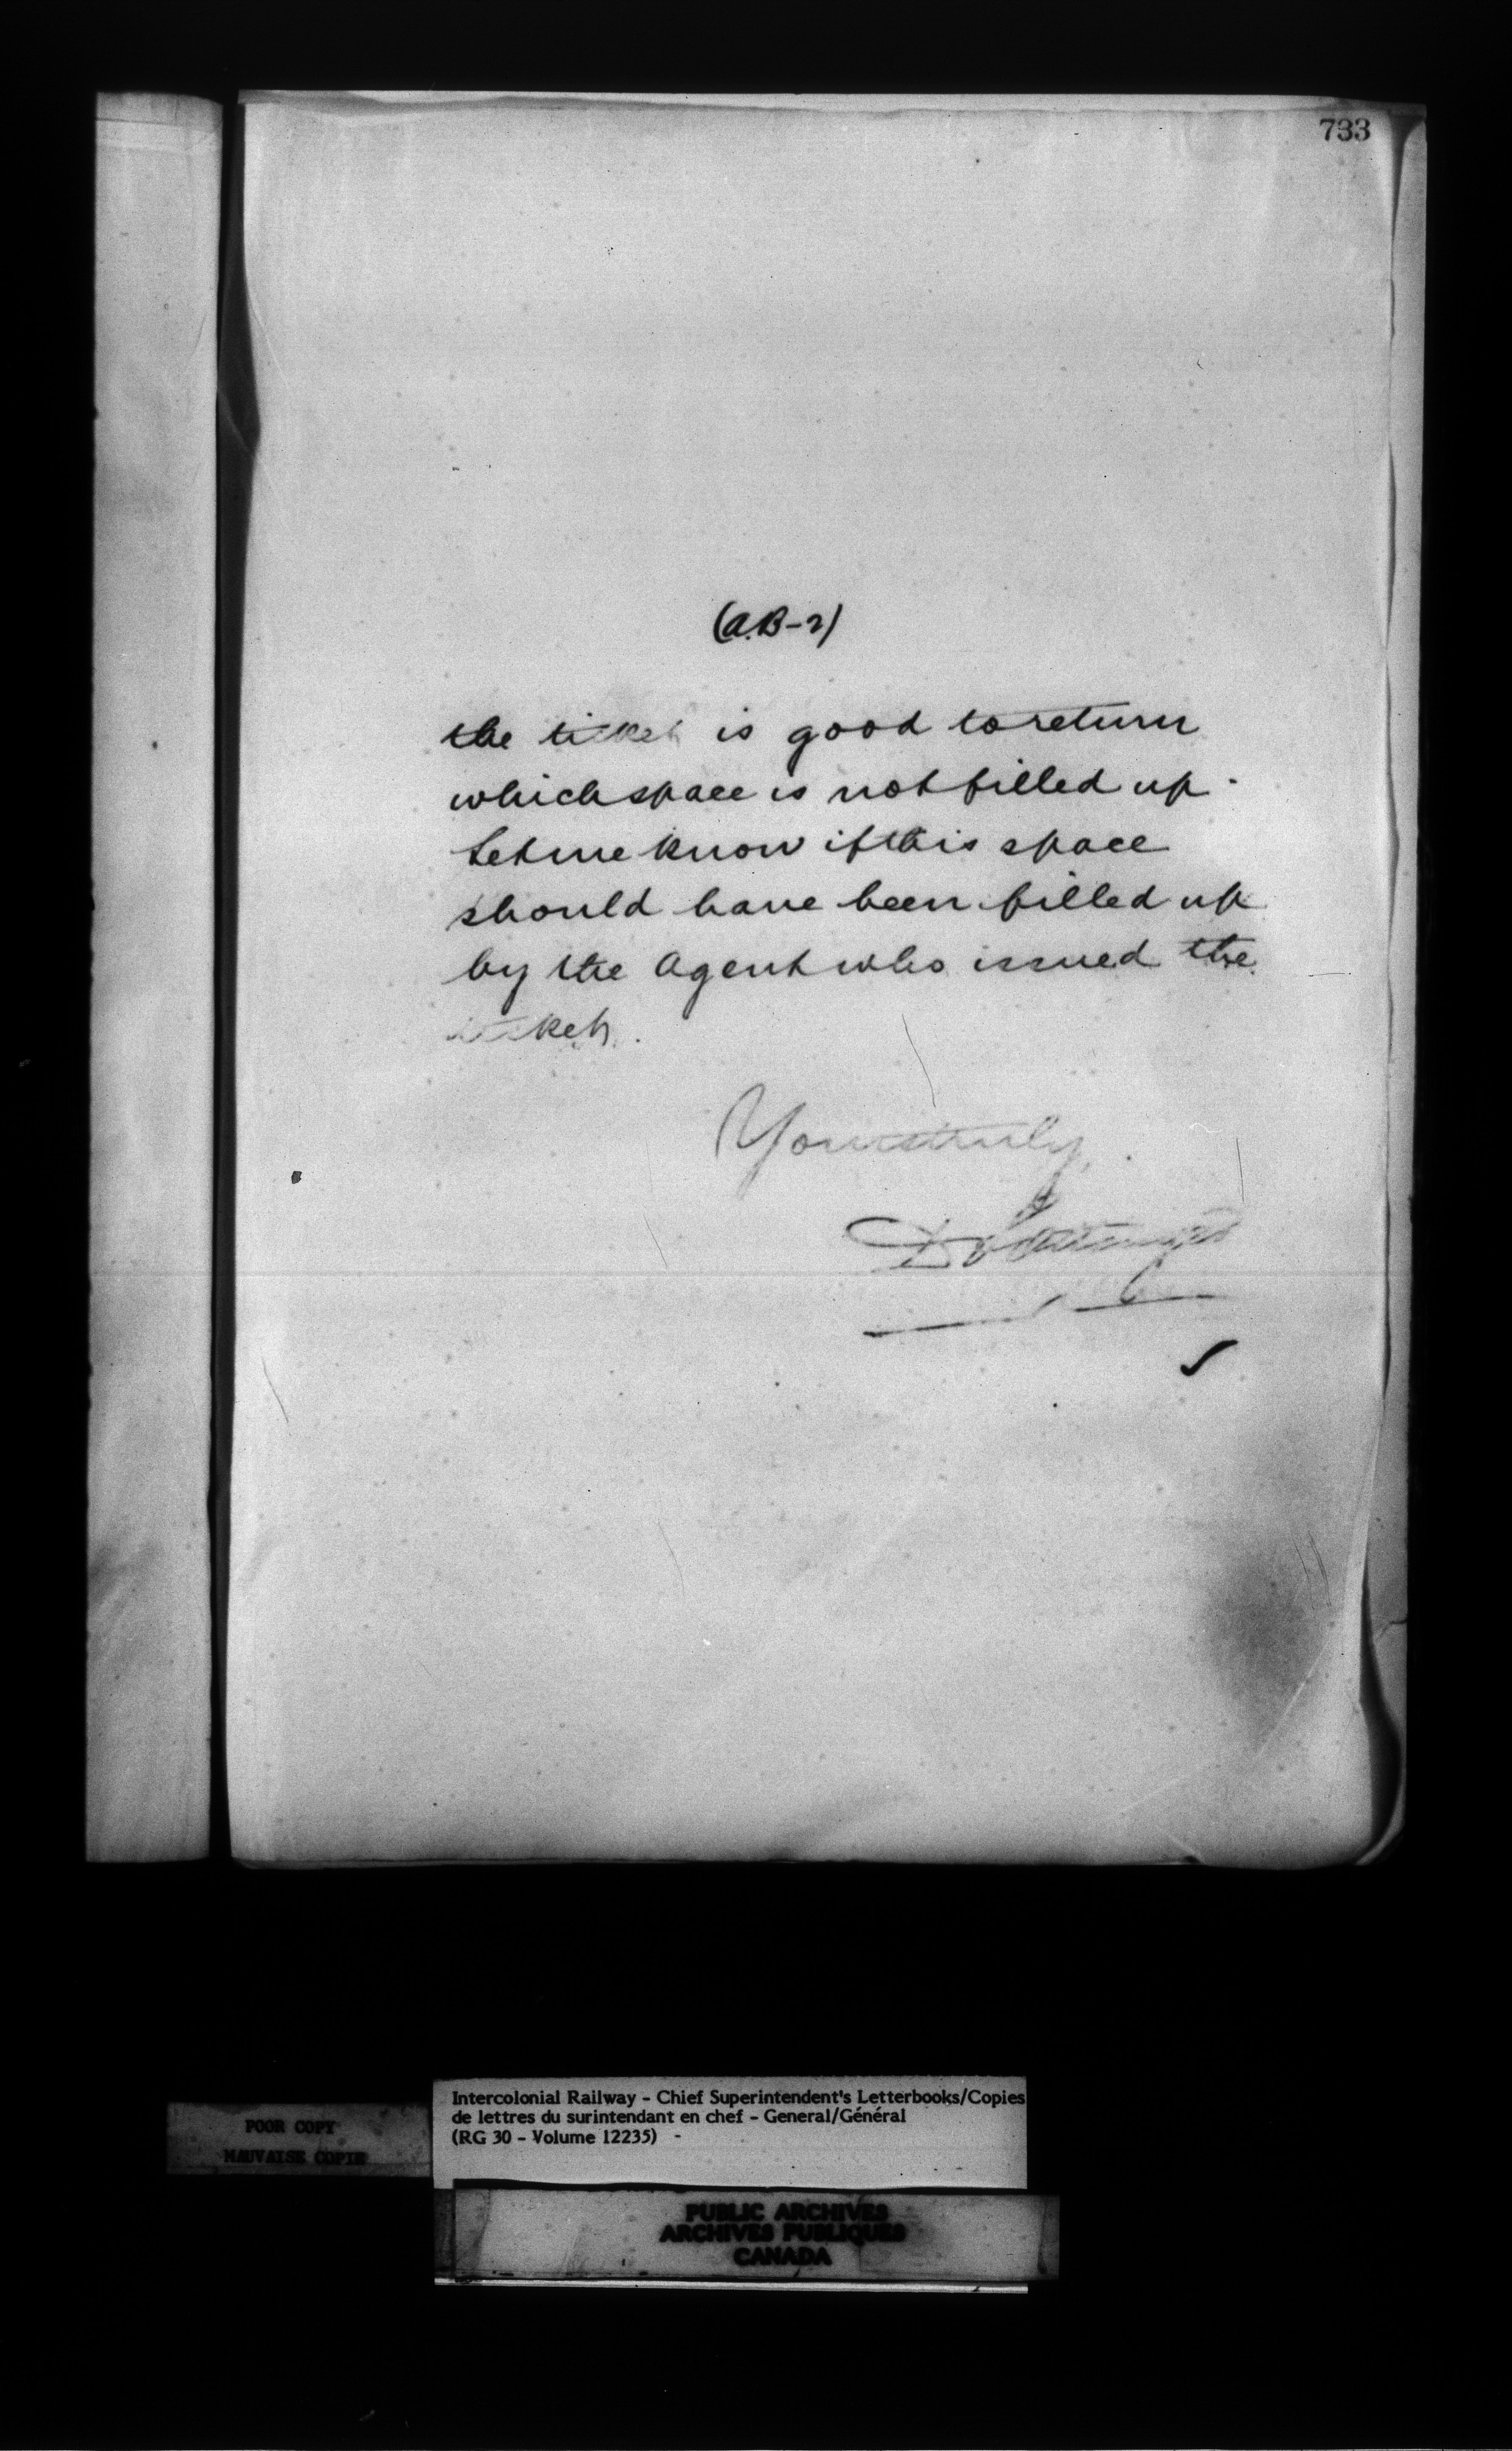 733
(A.B-2)
the ticket is good to return
which space is not filled up.
Let me know if this space
should have been filled up
by the Agent who issued the
ticket.
Yours truly,
Intercolonial Railway - Chief Superintendent's Letterbooks/Copies
de lettres du surintendant en chef - General/Général
(RG 30 - Volume 12235) -
POOR COPY
MAUVAISE COPIE
PUBLIC ARCHIVES
ARCHIVES PUBLIQUES
CANADA